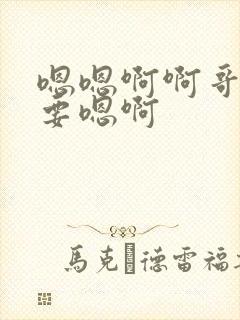 嗯嗯啊啊哥
要嗯啊
馬克德雷福